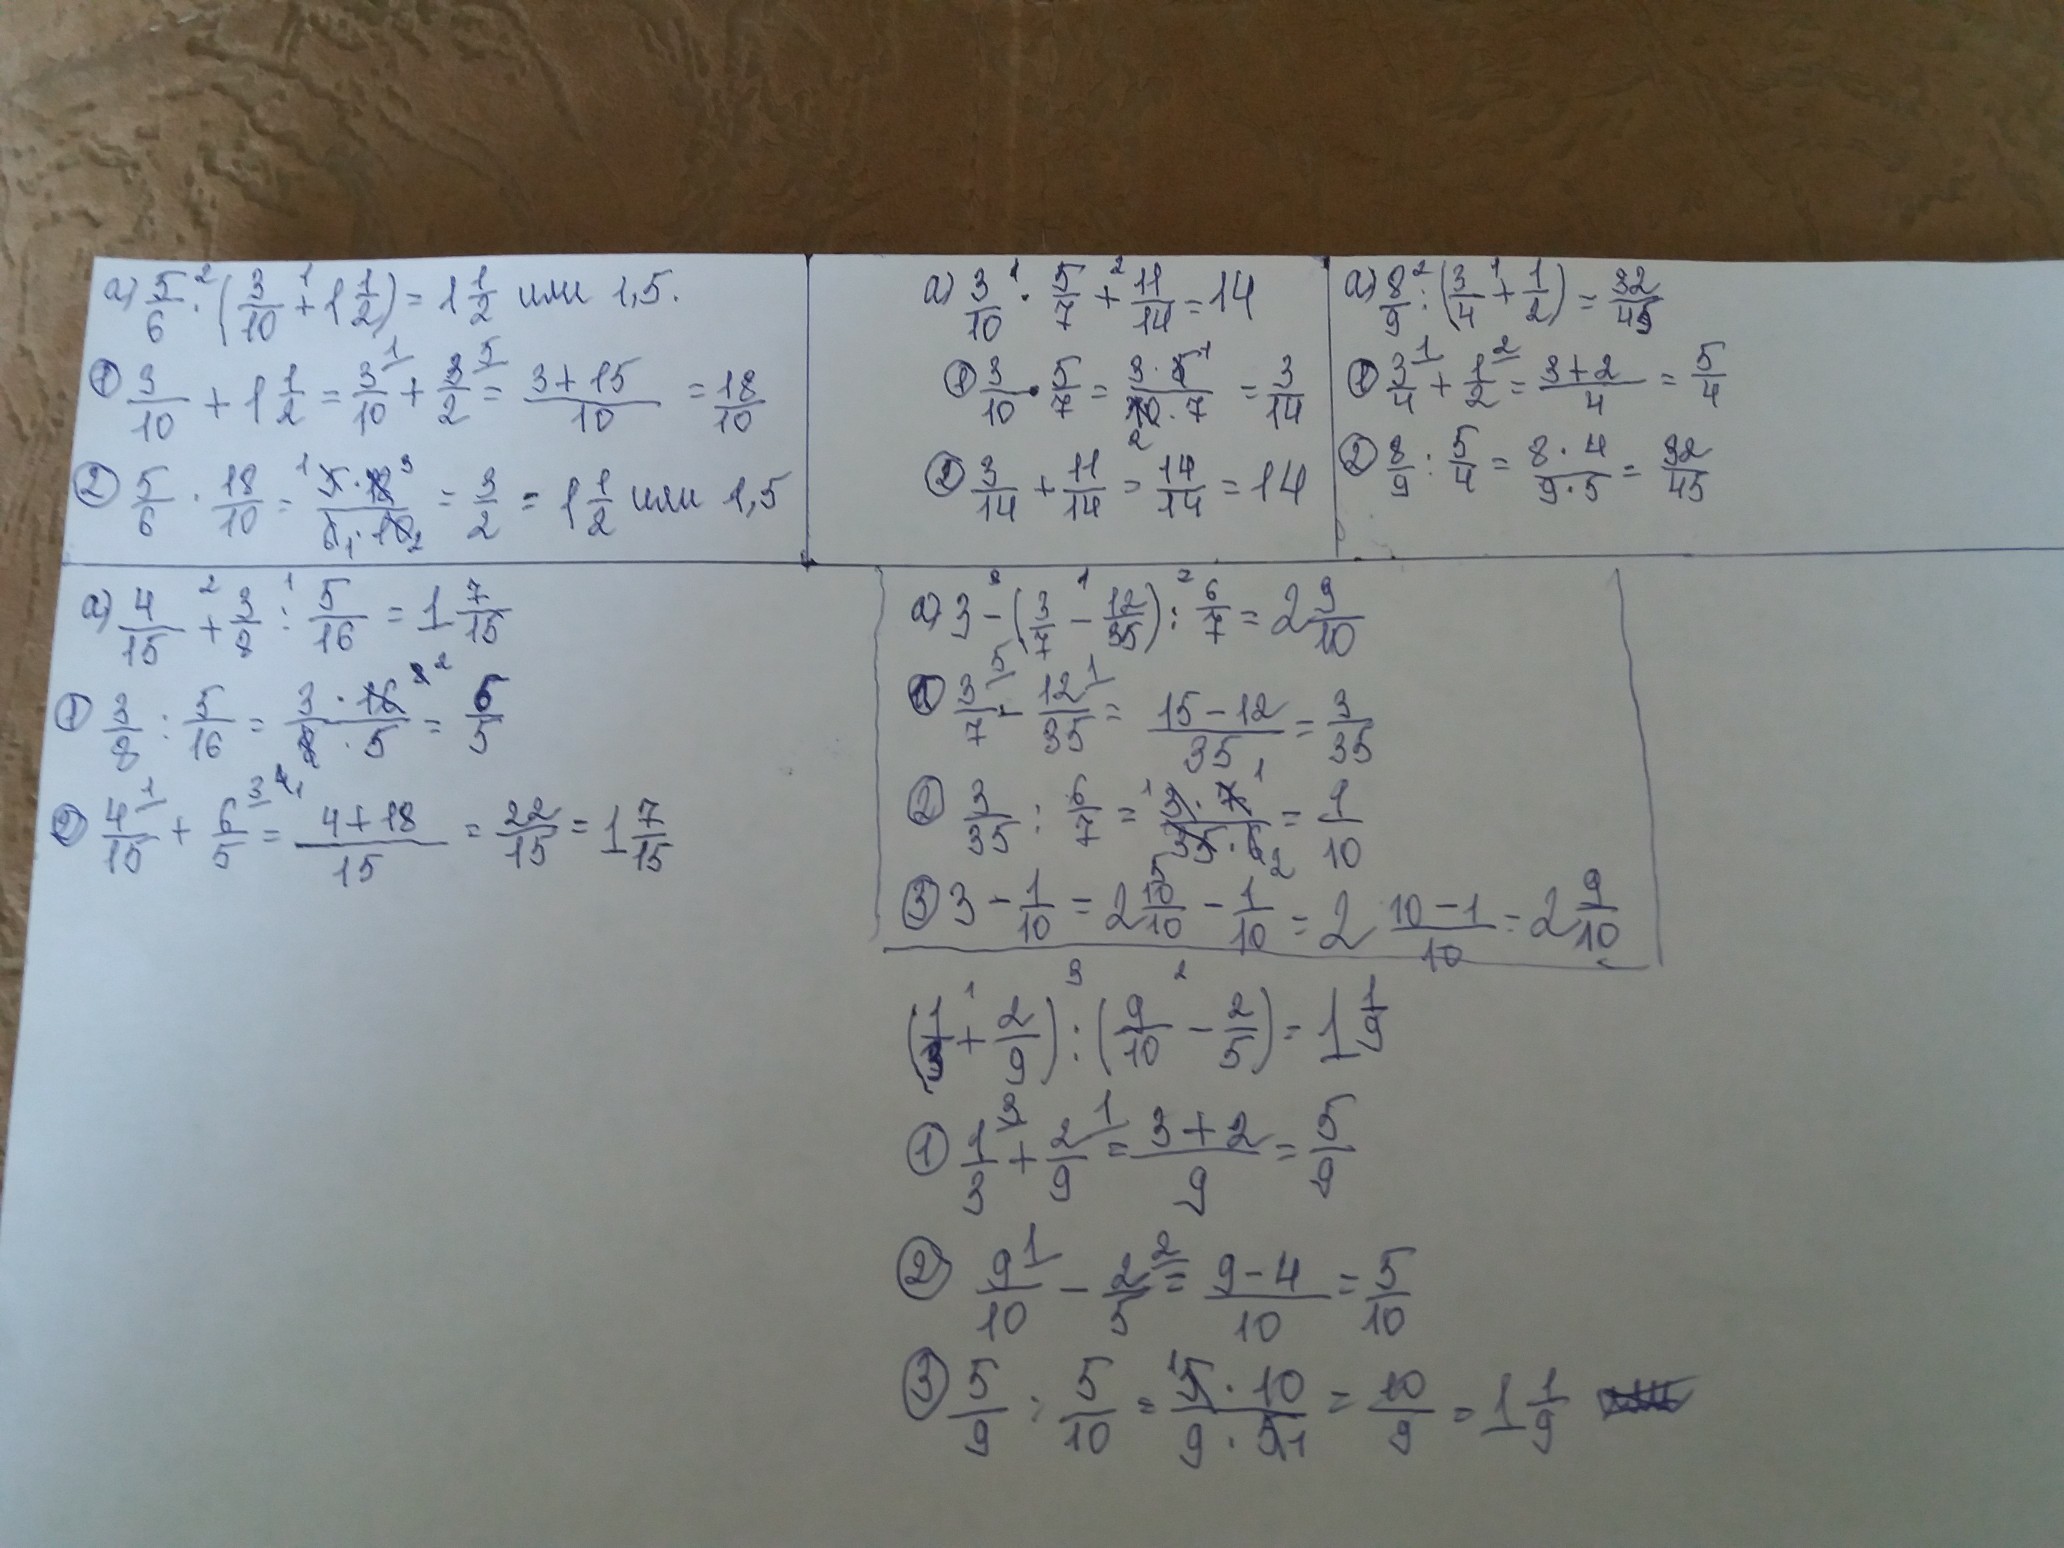 а) 5/6 · (3/10 + 1 1/2) = 1 1/2 или 1,5.
① 3/10 + 1 1/2 = 3/10 + 3/2 = (3+15)/10 = 18/10
② 5/6 · 18/10 = (5·18)/(6·10) = 3/2 = 1 1/2 или 1,5
а) 3/10 · 5/7 + 11/14 = 14
① 3/10 · 5/7 = (3·5)/(10·7) = 3/14
② 3/14 + 11/14 = 14/14 = 14
а) 8/9 : (3/4 + 1/2) = 32/45
① 3/4 + 1/2 = (3+2)/4 = 5/4
② 8/9 : 5/4 = (8·4)/(9·5) = 32/45
а) 4/15 + 3/8 : 5/16 = 1 7/15
① 3/8 : 5/16 = (3·16)/(8·5) = 6/5
② 4/15 + 6/5 = (4+18)/15 = 22/15 = 1 7/15
а) 3 - (3/7 - 12/35) : 6/7 = 2 9/10
① 3/7 - 12/35 = (15-12)/35 = 3/35
② 3/35 : 6/7 = (3·7)/(35·6) = 1/10
③ 3 - 1/10 = 2 10/10 - 1/10 = 2 (10-1)/10 = 2 9/10
(1/3 + 2/9) : (9/10 - 2/5) = 1 1/9
① 1/3 + 2/9 = (3+2)/9 = 5/9
② 9/10 - 2/5 = (9-4)/10 = 5/10
③ 5/9 : 5/10 = (5·10)/(9·5) = 10/9 = 1 1/9